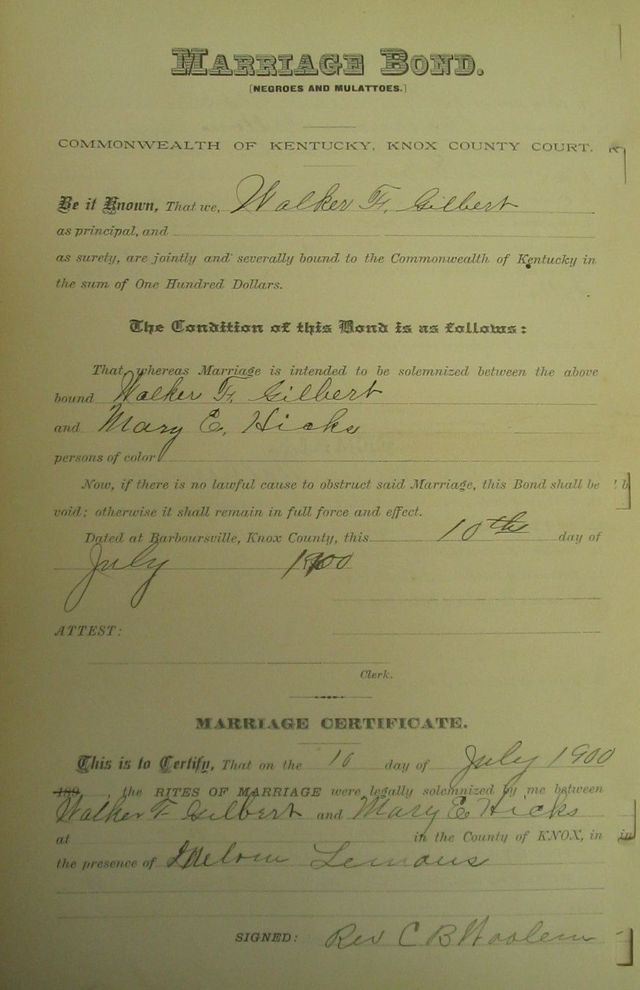 MARRIAGE BOND.
[NEGROES AND MULATTOES.]
COMMONWEALTH OF KENTUCKY, KNOX COUNTY COURT.
Be it Known, That we, Walker F. Gilbert
as principal, and
as surety, are jointly and severally bound to the Commonwealth of Kentucky in
the sum of One Hundred Dollars.
The Condition of this Bond is as follows:
That whereas Marriage is intended to be solemnized between the above
bound Walker F. Gilbert
and Mary E. Hicks
persons of color
Now, if there is no lawful cause to obstruct said Marriage, this Bond shall be
void; otherwise it shall remain in full force and effect.
Dated at Barboursville, Knox County, this 10th day of
July 1900
ATTEST:
Clerk.
MARRIAGE CERTIFICATE.
This is to Certify, That on the 10 day of July 1900
189 , the RITES OF MARRIAGE were legally solemnized by me between
Walker F Gilbert and Mary E Hicks
at in the County of KNOX, in
the presence of Lemons
SIGNED: Rev C B